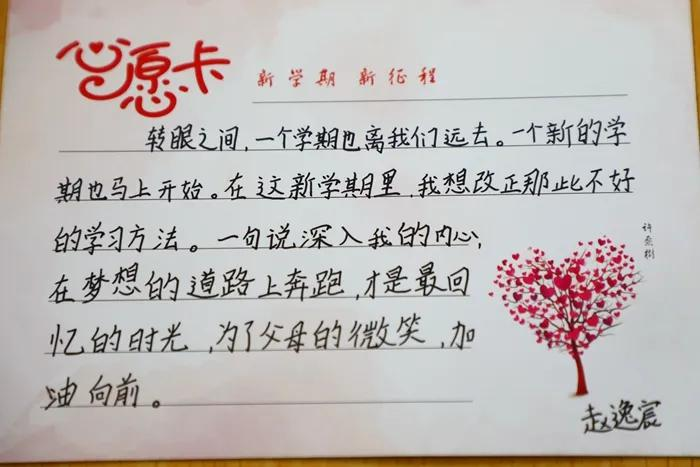 心愿卡
新学期 新征程
转眼之间,一个学期也离我们远去。一个新的学
期也马上开始。在这新学期里,我想改正那些不好
的学习方法。一句说深入我的内心,
在梦想的道路上奔跑,才是最回
忆的时光,为了父母的微笑,加
油向前。
许愿树
赵逸宸